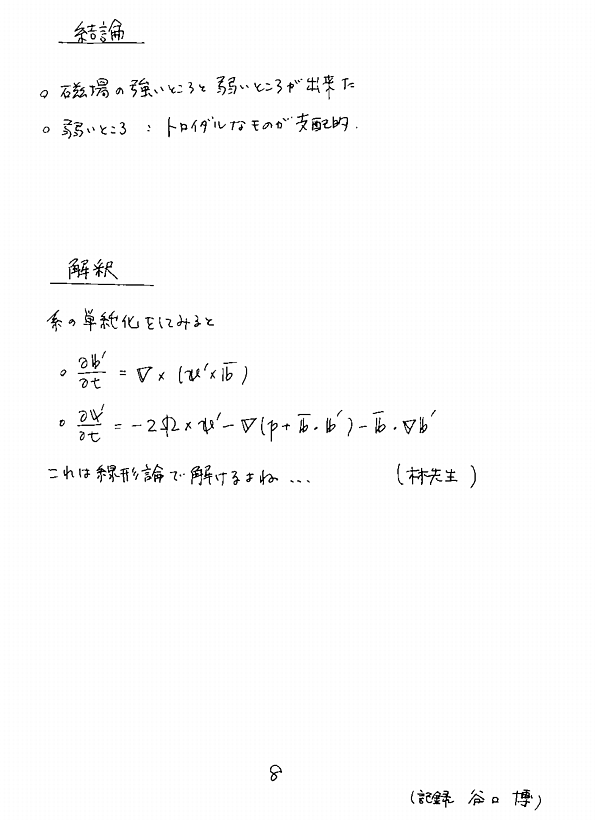 結論
○ 磁場の強いところと弱いところが出来た
○ 弱いところ : トロイダルなものが支配的.
解釈
系の単純化をしてみると
○ ∂𝕓′/∂t = ∇ × (𝕦′ × 𝕓̄)
○ ∂𝕦′/∂t = −2Ω × 𝕦′ − ∇(p + 𝕓̄ · 𝕓′) − 𝕓̄ · ∇𝕓′
これは線形論で解けるよね... (林先生)
8
(記録 谷口 博)